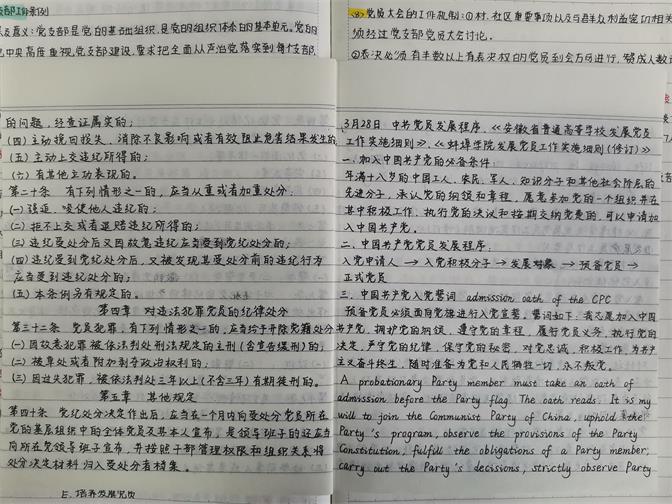 支部工作条例
及意义:党支部是党的基础组织,是党的组织体系的基本单元。党的
中央高度重视党支部建设,要求把全面从严治党落实到每个支部、
(8)党员大会的工作机制:①村、社区重要事项以及与群众利益密切相关
须经过党支部党员大会讨论。
②表决必须有半数以上有表决权的党员到会方可进行,赞成人数
的问题,经查证属实的;
(四)主动挽回损失、消除不良影响或者有效阻止危害结果发生的
(五)主动上交违纪所得的;
(六)有其他立功表现的。
第二十条 有下列情形之一的,应当从重或者加重处分:
(一)强迫、唆使他人违纪的;
(二)拒不上交或者退赔违纪所得的;
(三)违纪受处分后又因故意违纪应当受到党纪处分的;
(四)违纪受到党纪处分后,又被发现其受处分前的违纪行为
应当受到违纪处分的;
(五)本条例另有规定的。
第四章 对违法犯罪党员的纪律处分
第三十二条 党员犯罪,有下列情形之一的,应当给予开除党籍处分
(一)因故意犯罪被依法判处刑法规定的主刑(含宣告缓刑)的;
(二)被单处或者附加剥夺政治权利的;
(三)因过失犯罪,被依法判处三年以上(不含三年)有期徒刑的。
第五章 其他规定
第四十条 党纪处分决定作出后,应当在一个月内向受处分党员所在
党的基层组织中的全体党员及其本人宣布,是领导班子的还应当
向所在党领导班子宣布,并按照干部管理权限和组织关系将
处分决定材料归入受处分者档案。
3月28日 中共党员发展程序,《安徽省普通高等学校发展党员
工作实施细则》、《蚌埠学院发展党员工作实施细则(修订)》
一、加入中国共产党的必备条件
年满十八岁的中国工人、农民、军人、知识分子和其他社会阶层的
先进分子,承认党的纲领和章程,愿意参加党的一个组织并在
其中积极工作、执行党的决议和按期交纳党费的,可以申请加
入中国共产党。
二、中国共产党党员发展程序:
入党申请人 → 入党积极分子 → 发展对象 → 预备党员 →
正式党员
三、中国共产党入党誓词 admission oath of the CPC
预备党员必须面向党旗进行入党宣誓。誓词如下:我志愿加入中国
共产党,拥护党的纲领,遵守党的章程,履行党员义务,执行党的
决定,严守党的纪律,保守党的秘密,对党忠诚,积极工作,为共产
主义奋斗终生,随时准备为党和人民牺牲一切,永不叛党。
A probationary Party member must take an oath of
admission before the Party flag. The oath reads: It is my
will to join the Communist Party of China, uphold the
Party's program, observe the provisions of the Party
Constitution, fulfill the obligations of a Party member,
carry out the Party's decisions, strictly observe Party
5. 培养发展党员